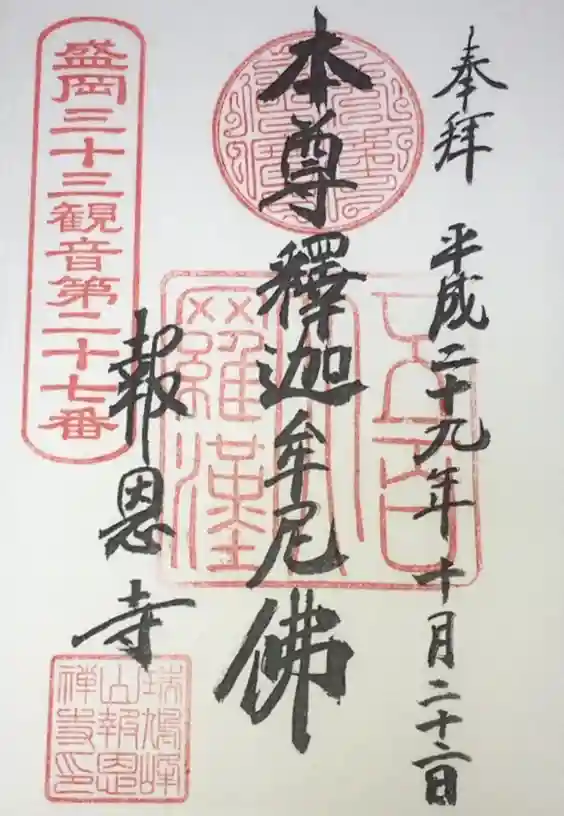 奉拝
平成二十九年十月二十二日
本尊釋迦牟尼佛
報恩寺
盛岡三十三観音第二十七番
五百羅漢
瑞鳩峰山報恩禅寺印